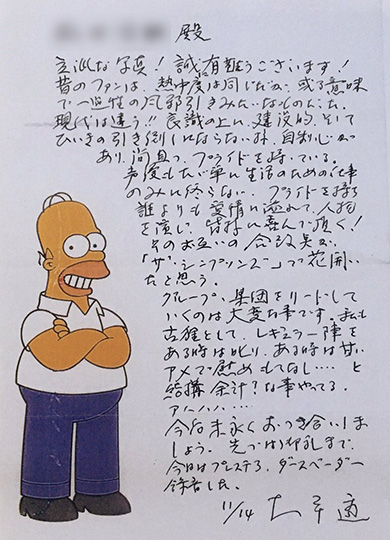 殿
立派な写真！誠有難うございます！
昔のファンは、熱中度は同じだが、或る意味
で一過性の風邪引きみたいなものだった
現代は違う!! 良識の上に、建設的、そして
ひいきの引き倒しにならない様、自制心が
あり、尚且つ、プライドを持っている。
声優もただ単に生活のための仕事
のみに終らない プライドを持ち
誰よりも愛情に溢れて、人物
を演じ、皆様に喜んで頂く！
そのお互いの合致点が
「ザ・シンプソンズ」って花開い
たと思う。
グループ、集団をリードして
いくのは大変な事です。私も
古株として、レギュラー陣を
ある時は叱り、ある時は甘い
アメで慰めもてなし…… と
結構余計？な事やってる。
アハハハ……
今后末永くおつき合いしま
しょう。先づは御礼まで、
今日はプレステ3、ダースベーダー
録音した。
11/14 大平透